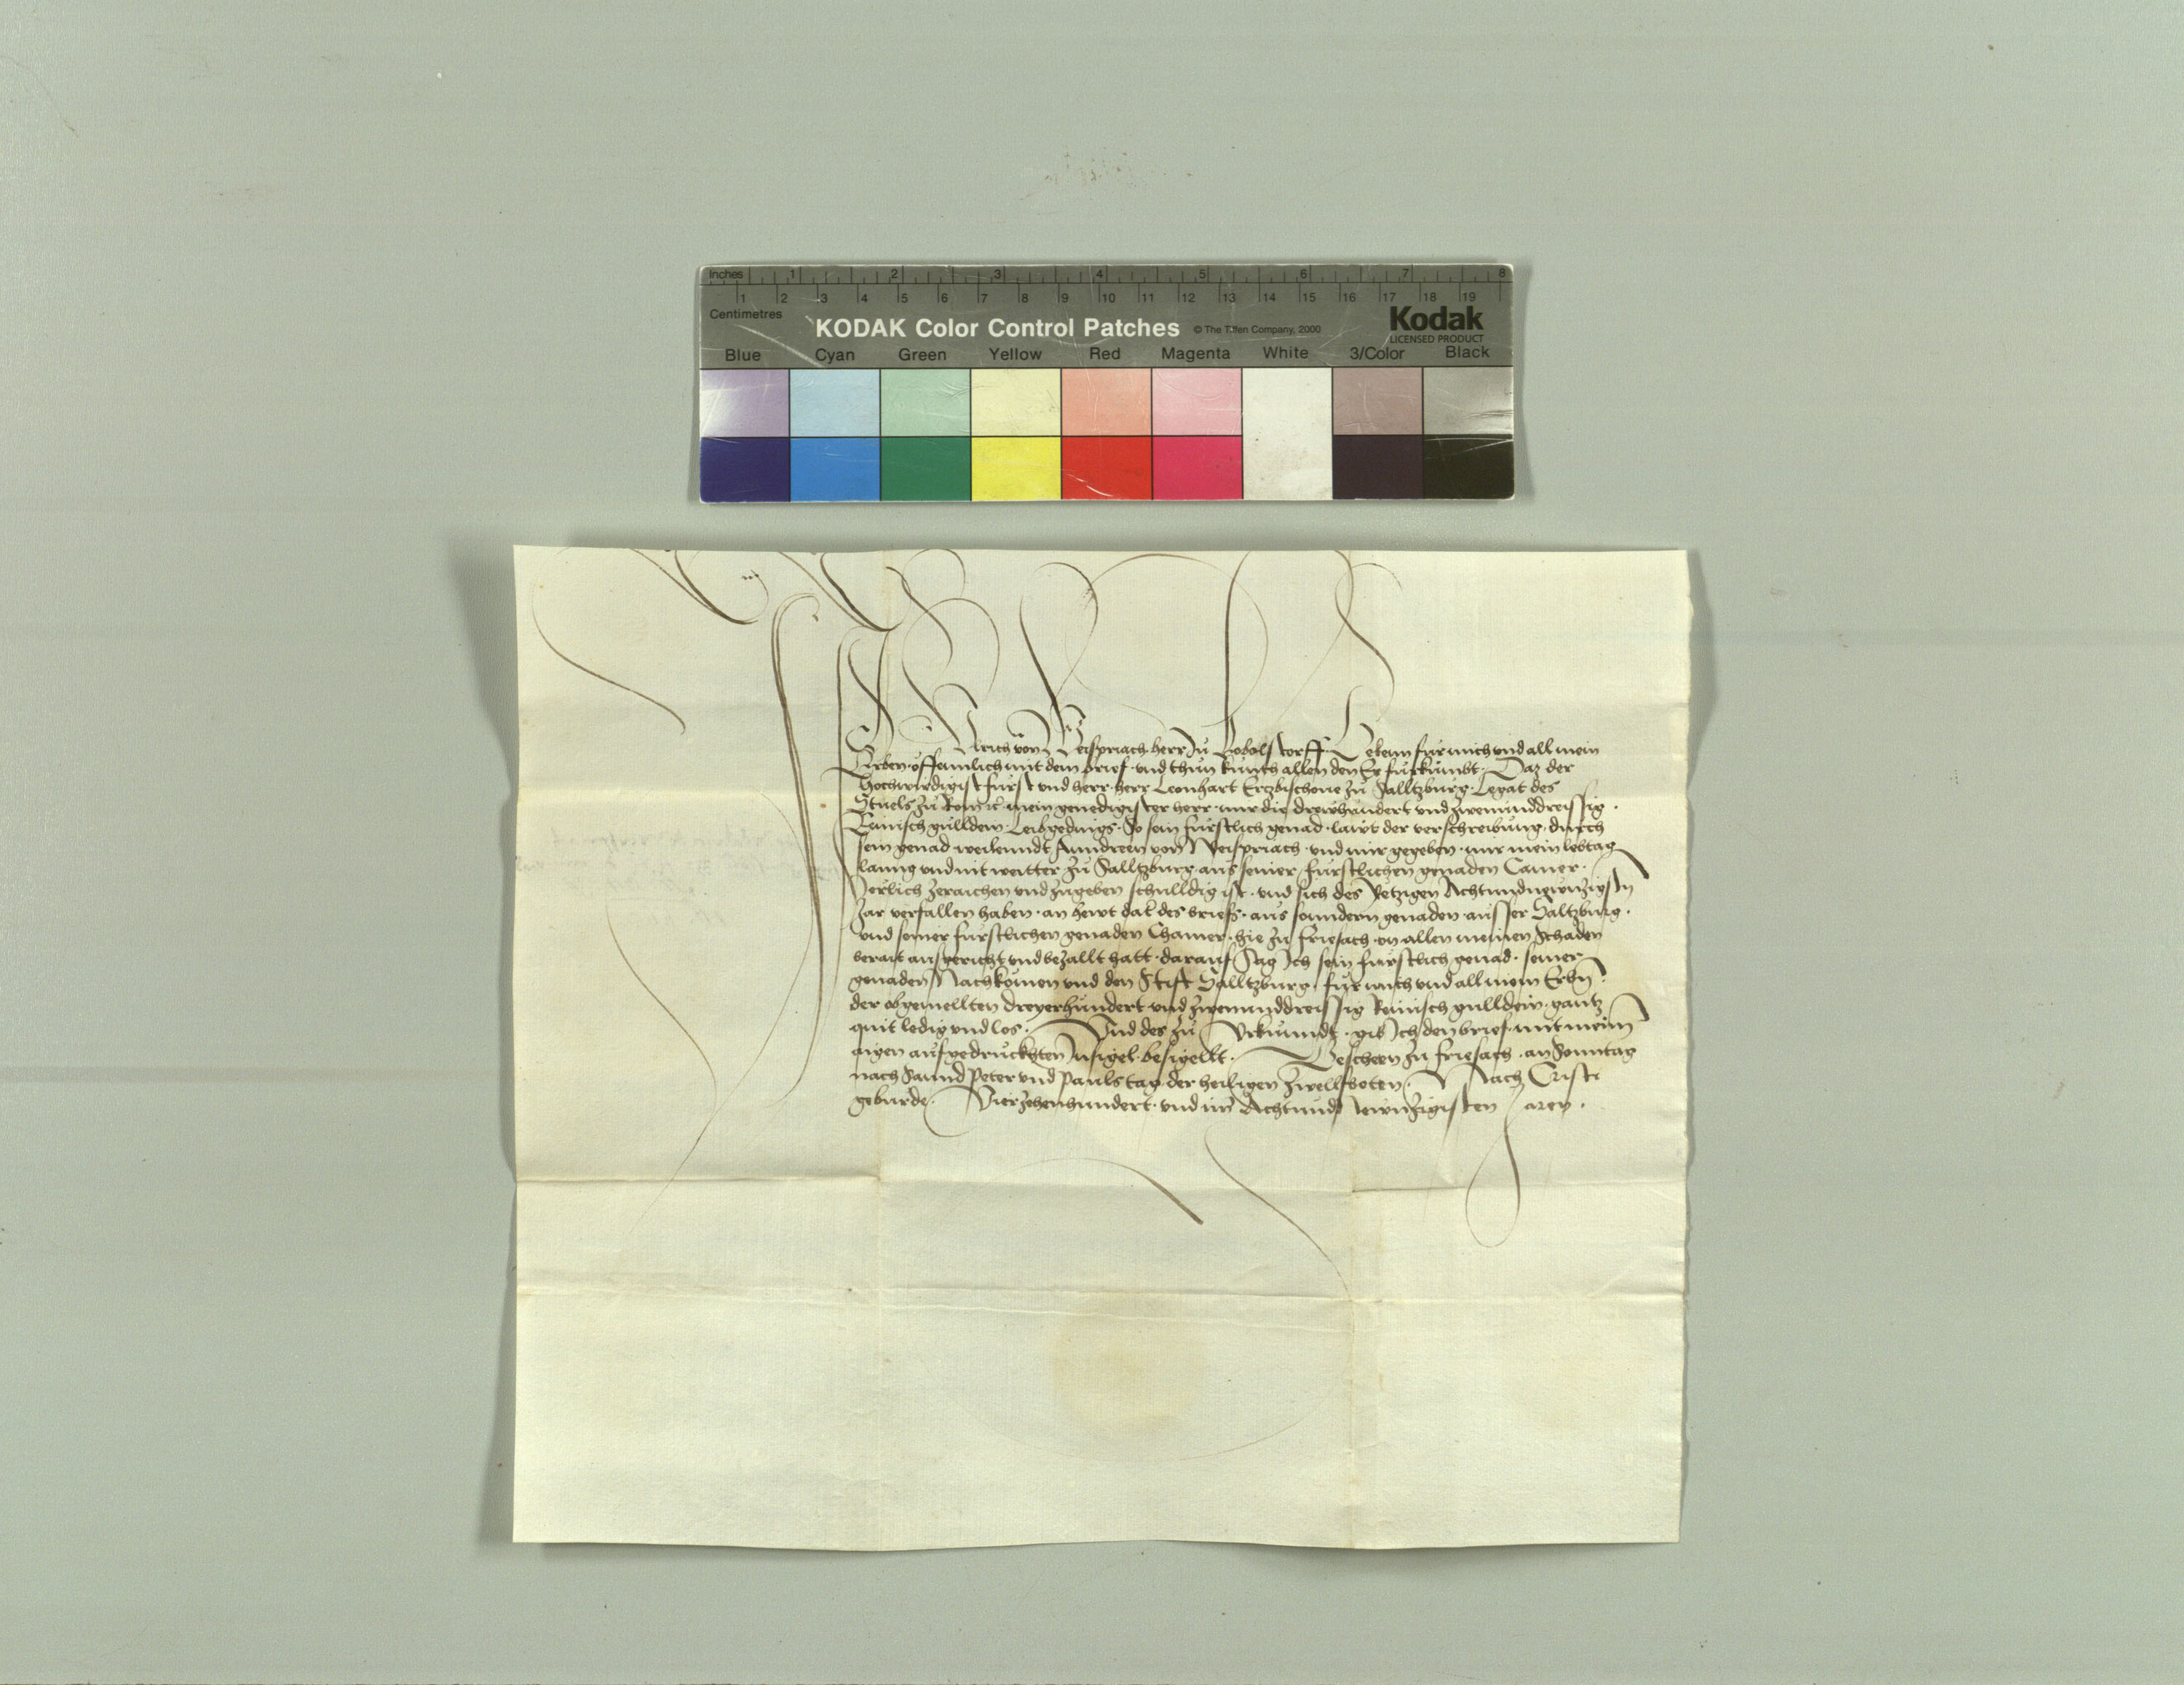 Inches 1 2 3 4 5 6 7 8
1 2 3 4 5 6 7 8 9 10 11 12 13 14 15 16 17 18 19
Centimetres
KODAK Color Control Patches © The Tiffen Company, 2000 Kodak
LICENSED PRODUCT
Blue Cyan Green Yellow Red Magenta White 3/Color Black
Ich Ulrich von Weispriach herr zu Kobolstorff Bekenn für mich und all mein
Erben offennlich mit dem brief und thun kunth allen den Er fürkumbt. Daz der
Hochwirdigist fürst und herr herr Leonhart Ertzbischove zu Salltzburg Legat des
Stuels zu Rom mein genedigister herr mir die drewhundert und zwenunddreissig
Reinisch gullden Leibgedings So sein fürstlich genad lawt der verschreibung durch
sein genad weilenndt Anndreen von Weispriach und mir gegeben mir mein lebtag
lanng und nit weitter zu Salltzburg aus seiner fürstlichen genaden Camer
Jerlich zeraichen und zugeben schulldig ist und sich des Yetzigen Achtundnewnzigstn
Jar verfallen haben an hewt dat des briefs aus sonndern genaden ausser Saltzburg
und seiner fürstlichen genaden Chamer hie zu friesach on allen meinen schaden
berait ausgericht und bezallt hatt darauf Sag Ich sein fürstlich genad seiner
genaden Nachkomen und den Stift Salltzburg für mich und all mein Erbn
der obgemellten dreyerhundert und zwenunddreissig Reinisch gullden gantz
quit ledig und los. Und des zu Urkundt gib Ich den brief mit meim
aigen aufgedruckhten Insigel besigellt. Geschehen zu friesach an Sonntag
nach Sannd Peter und Pauls tag der heiligen zwelfboten Nach Cristi
geburde Vierzehenhundert und im Achtundnewnzigisten Jaren